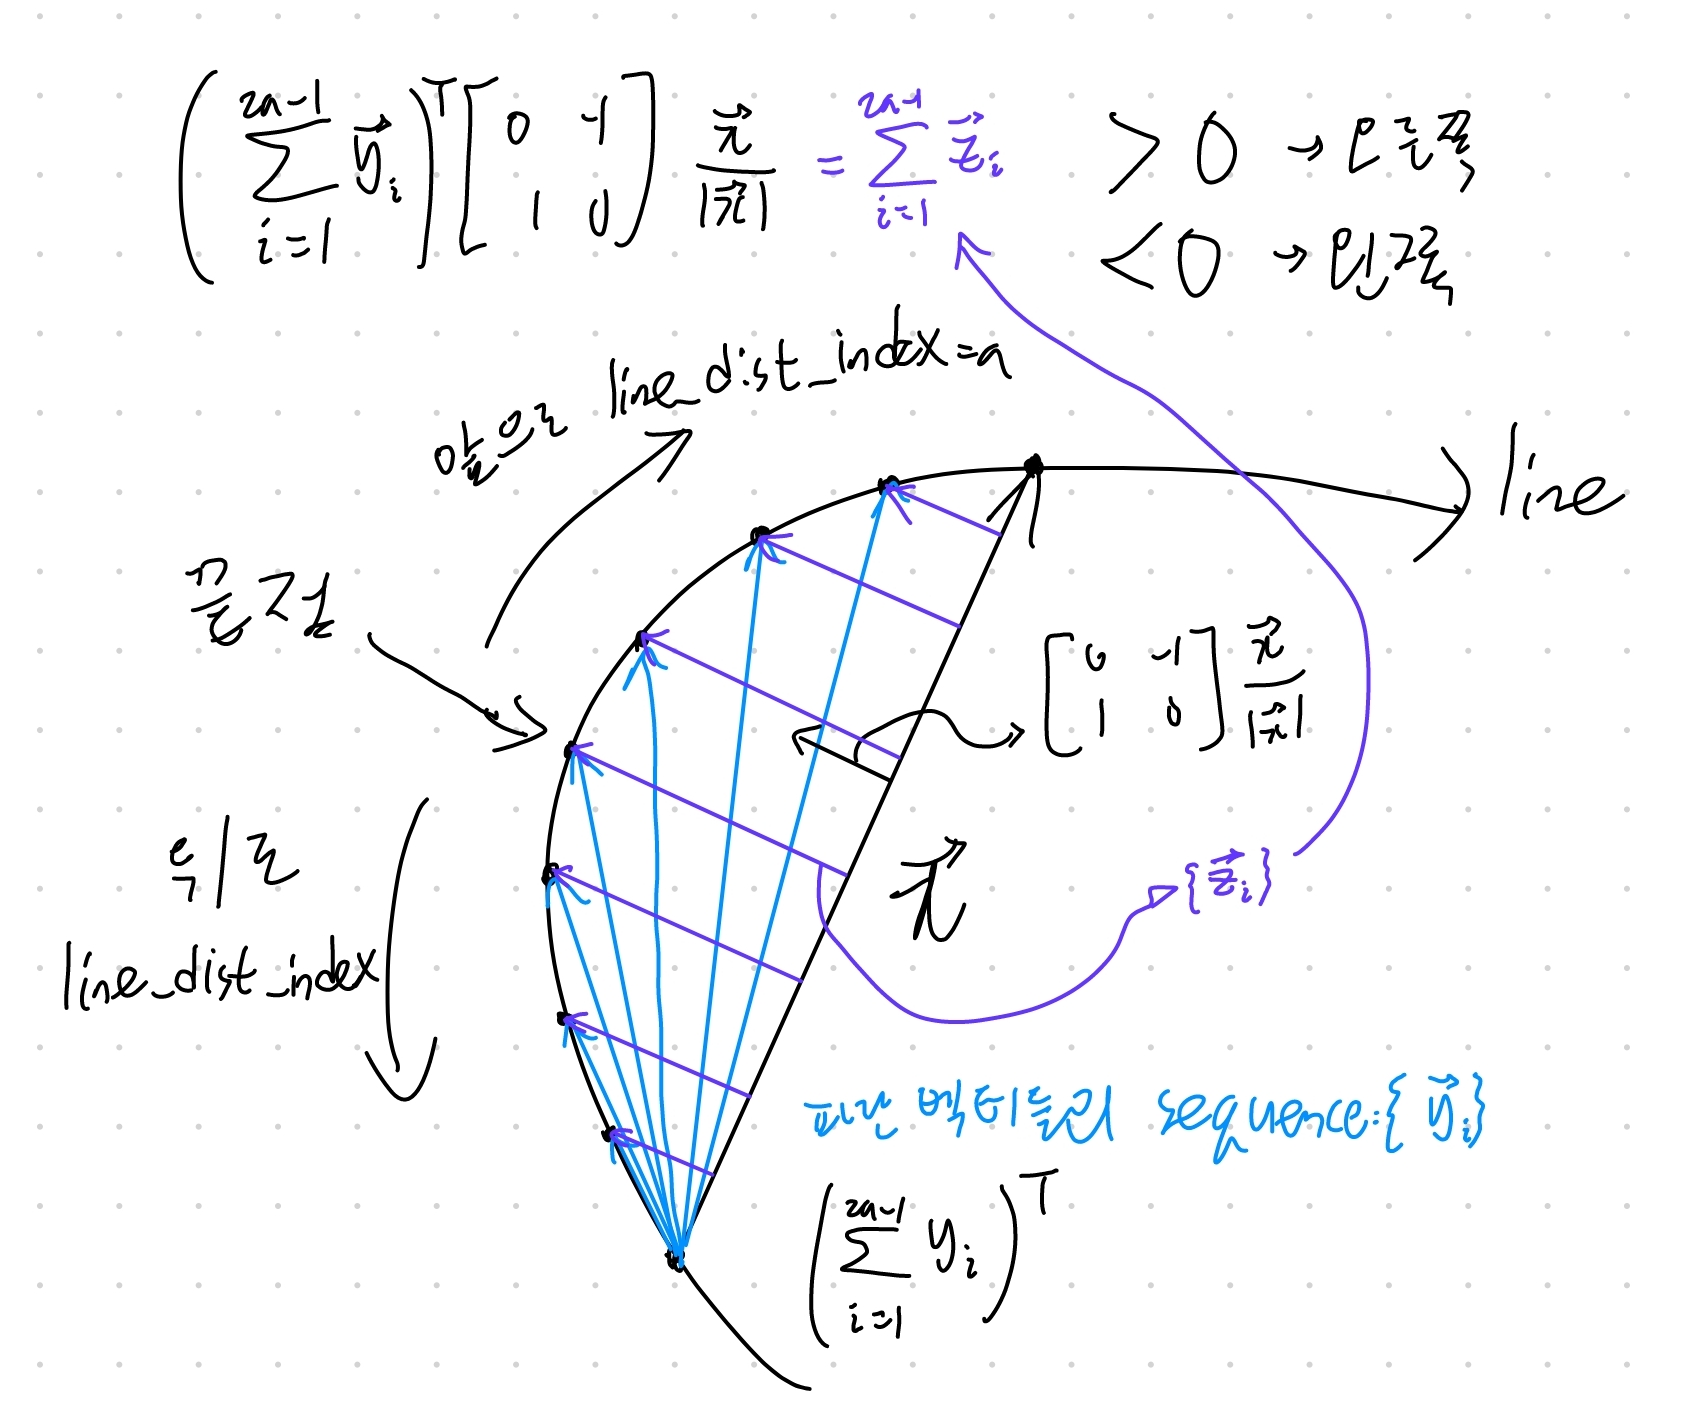 $\left(\sum_{i=1}^{2a-1} \vec{y}_i\right)^T \begin{bmatrix} 0 & -1 \\ 1 & 0 \end{bmatrix} \frac{\vec{x}}{|\vec{x}|} = \sum_{i=1}^{2a-1} \vec{z}_i$ > 0 → 오른쪽
< 0 → 왼쪽
앞으로 line_dist_index=a
line
끝점
$\begin{bmatrix} 0 & -1 \\ 1 & 0 \end{bmatrix} \frac{\vec{x}}{|\vec{x}|}$
뒤로
line_dist_index
$\vec{x}$
$\{\vec{z}_i\}$
파란 벡터들의 sequence: $\{\vec{y}_i\}$
$\left(\sum_{i=1}^{2a-1} y_i\right)^T$